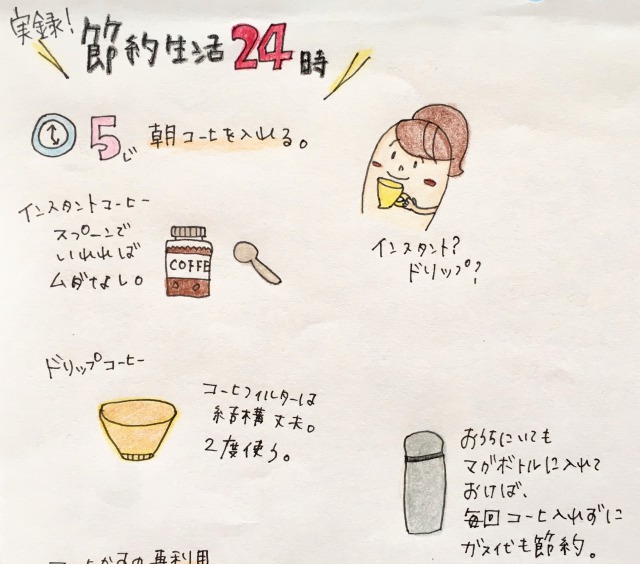 実録！
節約生活24時
5じ 朝コーヒーを入れる。
インスタント？
ドリップ？
インスタントコーヒー
スプーンで
いれれば
ムダなし。
COFFE
ドリップコーヒー
コーヒーフィルターは
結構丈夫。
2度使う。
おうちにいても
マグボトルに入れて
おけば、
毎回コーヒー入れずに
ガス代も節約。
コーヒーかすの再利用